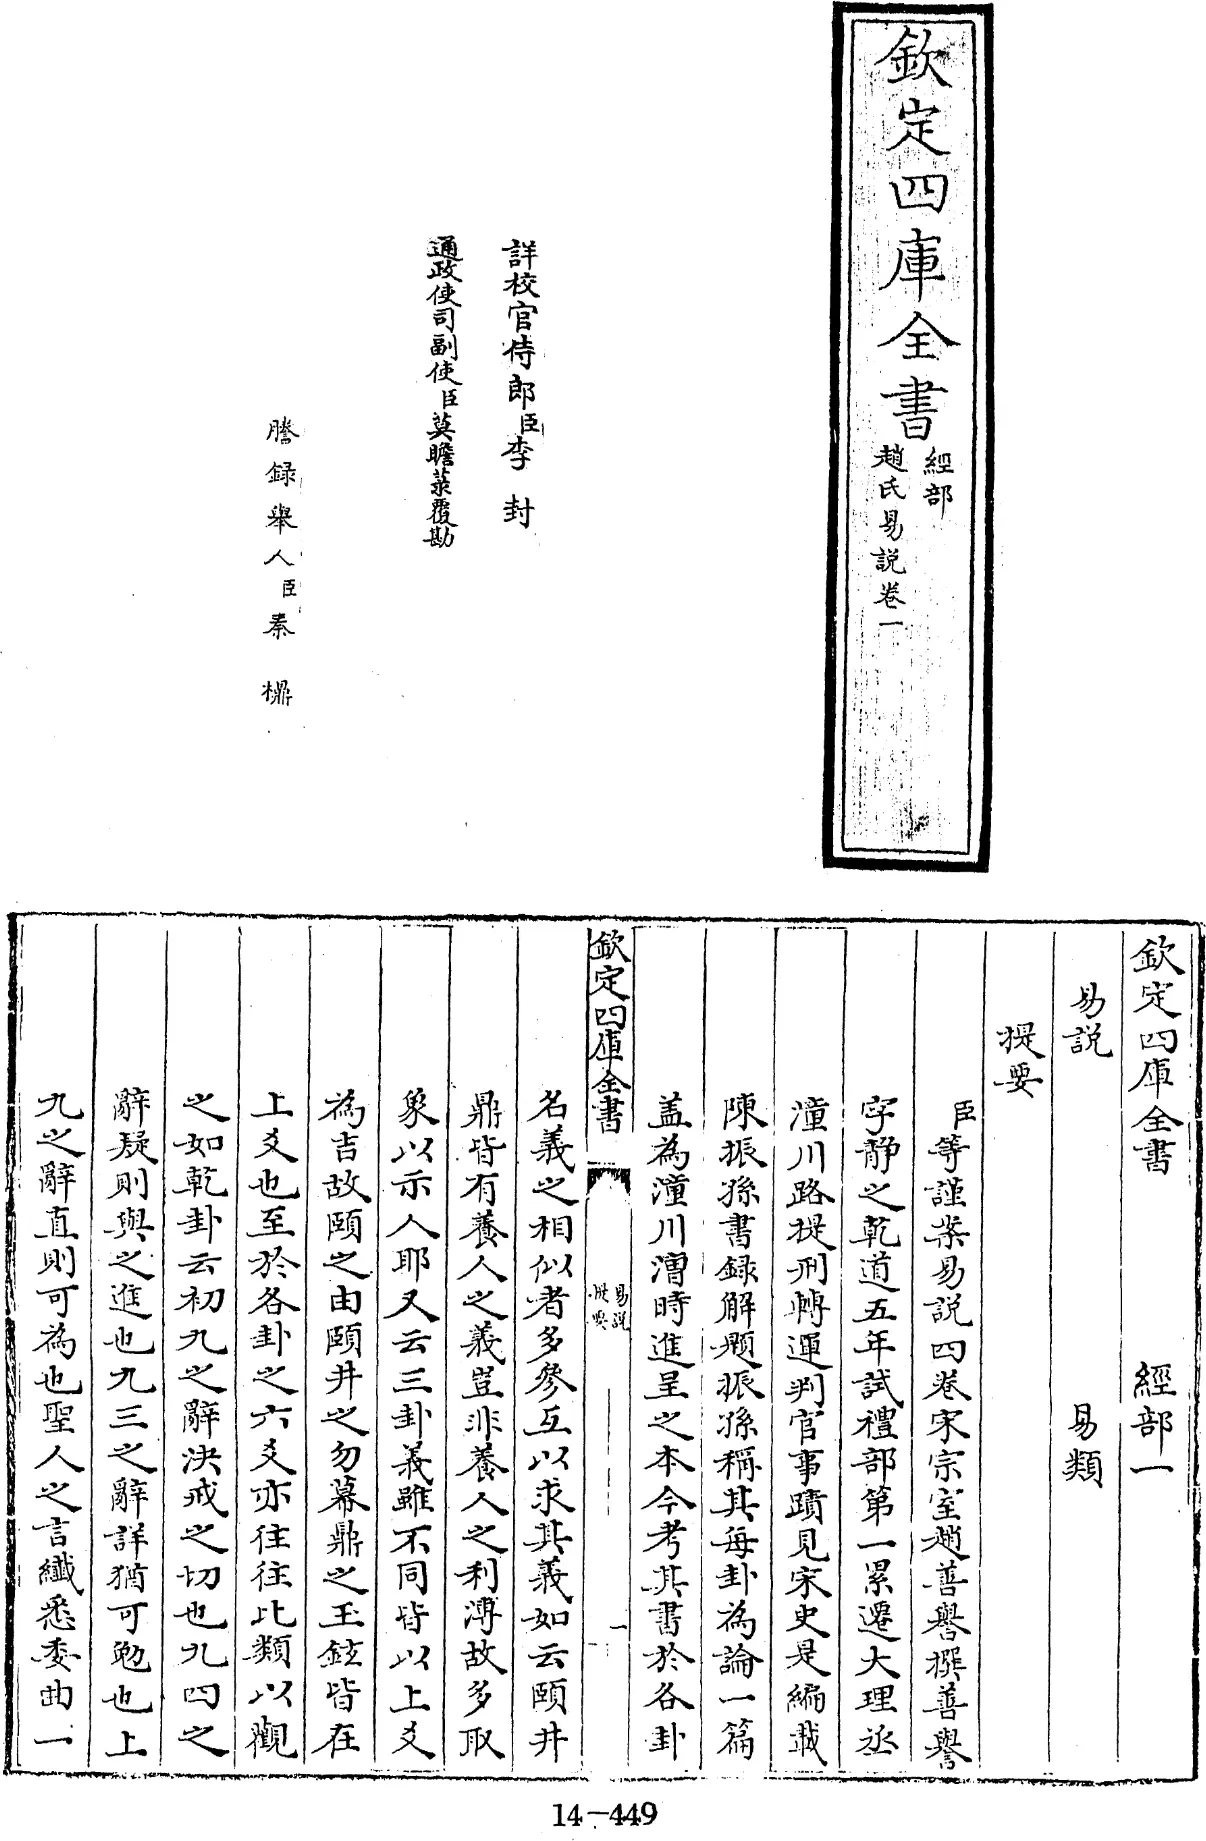 欽定四庫全書
經部
趙氏易説卷一
詳校官侍郎臣李封
通政使司副使臣莫瞻菉覆勘
謄録舉人臣秦榞
欽定四庫全書 經部一
易説 易類
提要
臣等謹案易説四卷宋宗室趙善譽撰善譽
字静之乾道五年試禮部第一累遷大理丞
潼川路提刑轉運判官事蹟見宋史是編載
陳振孫書録解題振孫稱其每卦為論一篇
盖為潼川漕時進呈之本今考其書於各卦
欽定四庫全書
易説
提要
一
名義之相似者多參互以求其義如云頤井
鼎皆有養人之義豈非養人之利溥故多取
象以示人耶又云三卦義雖不同皆以上爻
為吉故頤之由頤井之勿幕鼎之玉鉉皆在
上爻也至於各卦之六爻亦往往比類以觀
之如乾卦云初九之辭決戒之切也九四之
辭疑則與之進也九三之辭詳猶可勉也上
九之辭直則可為也聖人之言纖悉委曲一
14-449